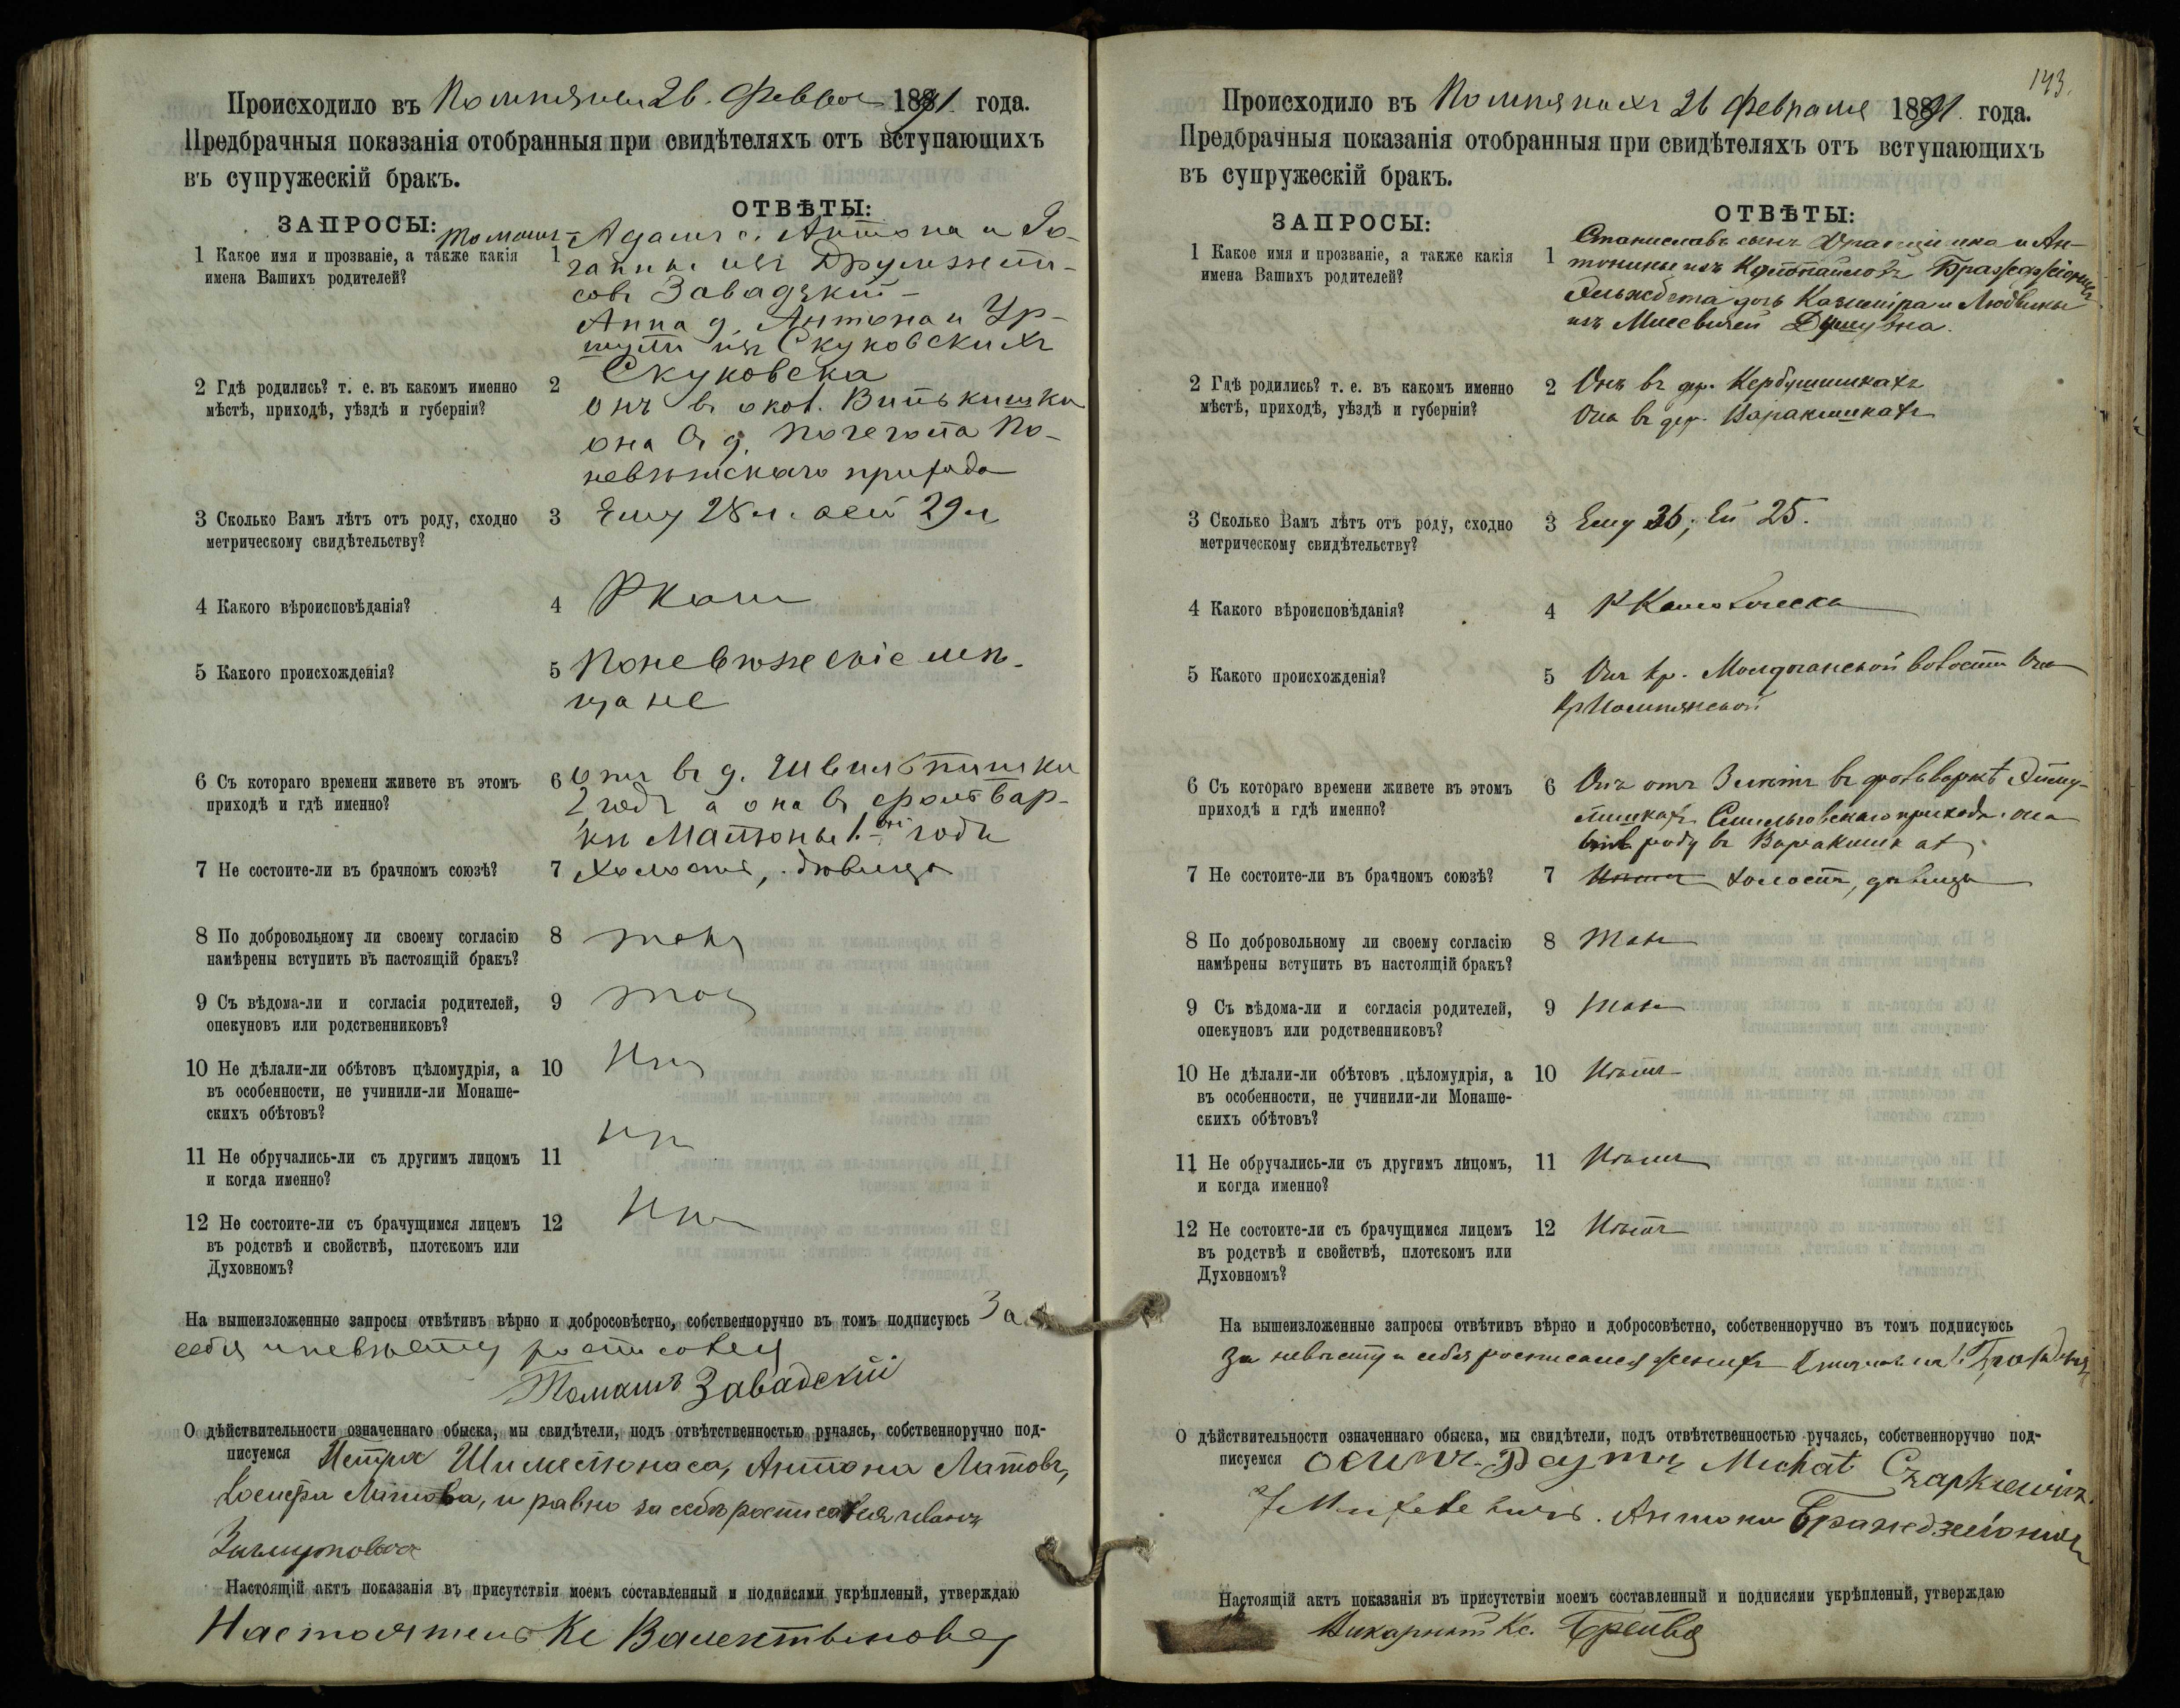 Происходило въ 26. 1891 года.
Предбрачныя показанія отобранныя при свидѣтеляхъ отъ вступающихъ
въ супружескій бракъ.
ЗАПРОСЫ:
ОТВѢТЫ:
1 Какое имя и прозваніе, а также какія
имена Вашихъ родителей?
1 Томашъ-Адамъ с. Антона и Ро-
Завадзкій
Анна д. Антона и Ур-
шули изъ Скуковскихъ
Скуковска
2 Гдѣ родились? т. е. въ какомъ именно
мѣстѣ, приходѣ, уѣздѣ и губерніи?
2 онъ в окол.
она в д. По-
невѣжскаго прихода
3 Сколько Вамъ лѣтъ отъ роду, сходно
метрическому свидѣтельству?
3 Ему 28 л. а ей 29 л
4 Какого вѣроисповѣданія?
4 РКат
5 Какого происхожденія?
5 Поневѣжескіе мѣ-
щане
6 Съ котораго времени живете въ этомъ
приходѣ и гдѣ именно?
6 онъ въ д.
2 года а она в фольвар-
кѣ Матюны 1. года
7 Не состоите-ли въ брачномъ союзѣ?
7 Холостъ, дѣвица
8 По добровольному ли своему согласію
намѣрены вступить въ настоящій бракъ?
8 такъ
9 Съ вѣдома-ли и согласія родителей,
опекуновъ или родственниковъ?
9 так
10 Не дѣлали-ли обѣтовъ цѣломудрія, а
въ особенности, не учинили-ли Монаше-
скихъ обѣтовъ?
10 Нѣт
11 Не обручались-ли съ другимъ лицомъ
и когда именно?
11 Нѣт
12 Не состоите-ли съ брачущимся лицемъ
въ родствѣ и свойствѣ, плотскомъ или
Духовномъ?
12 Нѣт
На вышеизложенные запросы отвѣтивъ вѣрно и добросовѣстно, собственноручно въ томъ подписуюсь За
себя и невѣсту росписался
Томашъ Завадскій
О дѣйствительности означеннаго обыска, мы свидѣтели, подъ отвѣтственностью ручаясь, собственноручно под-
писуемся Петра Шимелюнаса, Антона Латовъ,
Іосифа Латова, и равно за себя росписался
Настоящій актъ показанія въ присутствіи моемъ составленный и подписями укрѣпленый, утверждаю
Настоятель Кс
143.
Происходило въ 26 Февраля 1891. года.
Предбрачныя показанія отобранныя при свидѣтеляхъ отъ вступающихъ
въ супружескій бракъ.
ЗАПРОСЫ:
ОТВѢТЫ:
1 Какое имя и прозваніе, а также какія
имена Вашихъ родителей?
1 Станиславъ сынъ Францишка и Ан-
тонины изъ
Эльжбета дочь Казиміра и Людвики
изъ
2 Гдѣ родились? т. е. въ какомъ именно
мѣстѣ, приходѣ, уѣздѣ и губерніи?
2 Онъ въ дер. Кербушишкахъ
Она въ дер. Варакишкахъ
3 Сколько Вамъ лѣтъ отъ роду, сходно
метрическому свидѣтельству?
3 Ему 36; Ей 25.
4 Какого вѣроисповѣданія?
4 РКатолическа
5 Какого происхожденія?
5 Онъ кр. волости Она
кр
6 Съ котораго времени живете въ этомъ
приходѣ и гдѣ именно?
6 Онъ отъ 3 лѣтъ въ фольваркѣ
прихода. она
роду въ Варакишках
7 Не состоите-ли въ брачномъ союзѣ?
7 холостъ, дѣвица
8 По добровольному ли своему согласію
намѣрены вступить въ настоящій бракъ?
8 Такъ
9 Съ вѣдома-ли и согласія родителей,
опекуновъ или родственниковъ?
9 Такъ
10 Не дѣлали-ли обѣтовъ цѣломудрія, а
въ особенности, не учинили-ли Монаше-
скихъ обѣтовъ?
10 Нѣтъ
11 Не обручались-ли съ другимъ лицомъ,
и когда именно?
11 Нѣтъ
12 Не состоите-ли съ брачущимся лицемъ
въ родствѣ и свойствѣ, плотскомъ или
Духовномъ?
12 Нѣтъ
На вышеизложенные запросы отвѣтивъ вѣрно и добросовѣстно, собственноручно въ томъ подписуюсь
За невѣсту и себя росписался женихъ
О дѣйствительности означеннаго обыска, мы свидѣтели, подъ отвѣтственностью ручаясь, собственноручно под-
писуемся Michał Czapkiewicz.
Антони
Настоящій актъ показанія въ присутствіи моемъ составленный и подписями укрѣпленый, утверждаю
Викарный Кс.